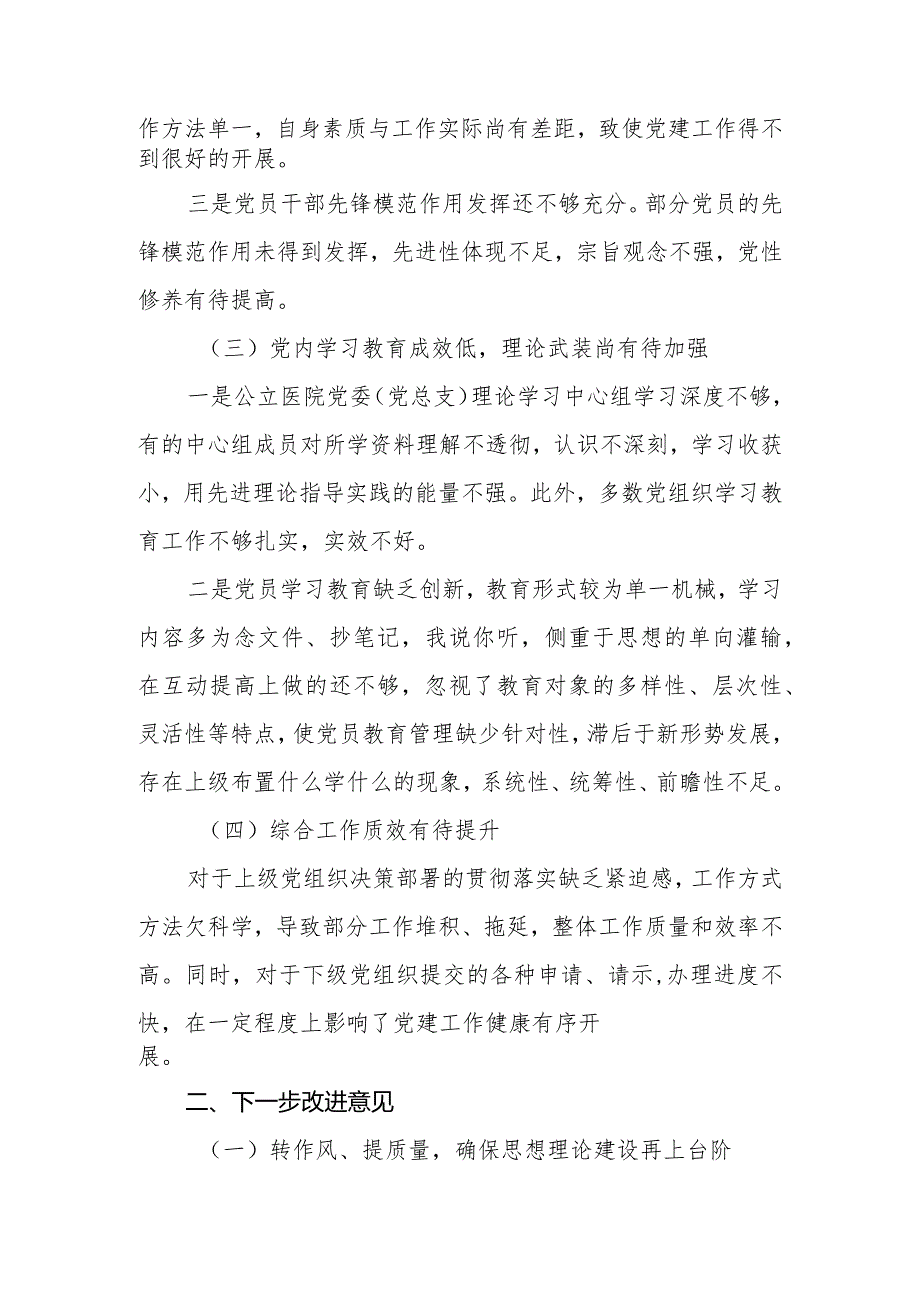 作方法单一，自身素质与工作实际尚有差距，致使党建工作得不
到很好的开展。
三是党员干部先锋模范作用发挥还不够充分。部分党员的先
锋模范作用未得到发挥，先进性体现不足，宗旨观念不强，党性
修养有待提高。
（三）党内学习教育成效低，理论武装尚有待加强
一是公立医院党委（党总支）理论学习中心组学习深度不够，
有的中心组成员对所学资料理解不透彻，认识不深刻，学习收获
小，用先进理论指导实践的能量不强。此外，多数党组织学习教
育工作不够扎实，实效不好。
二是党员学习教育缺乏创新，教育形式较为单一机械，学习
内容多为念文件、抄笔记，我说你听，侧重于思想的单向灌输，
在互动提高上做的还不够，忽视了教育对象的多样性、层次性、
灵活性等特点，使党员教育管理缺少针对性，滞后于新形势发展，
存在上级布置什么学什么的现象，系统性、统筹性、前瞻性不足。
（四）综合工作质效有待提升
对于上级党组织决策部署的贯彻落实缺乏紧迫感，工作方式
方法欠科学，导致部分工作堆积、拖延，整体工作质量和效率不
高。同时，对于下级党组织提交的各种申请、请示,办理进度不
快，在一定程度上影响了党建工作健康有序开
展。
二、下一步改进意见
（一）转作风、提质量，确保思想理论建设再上台阶